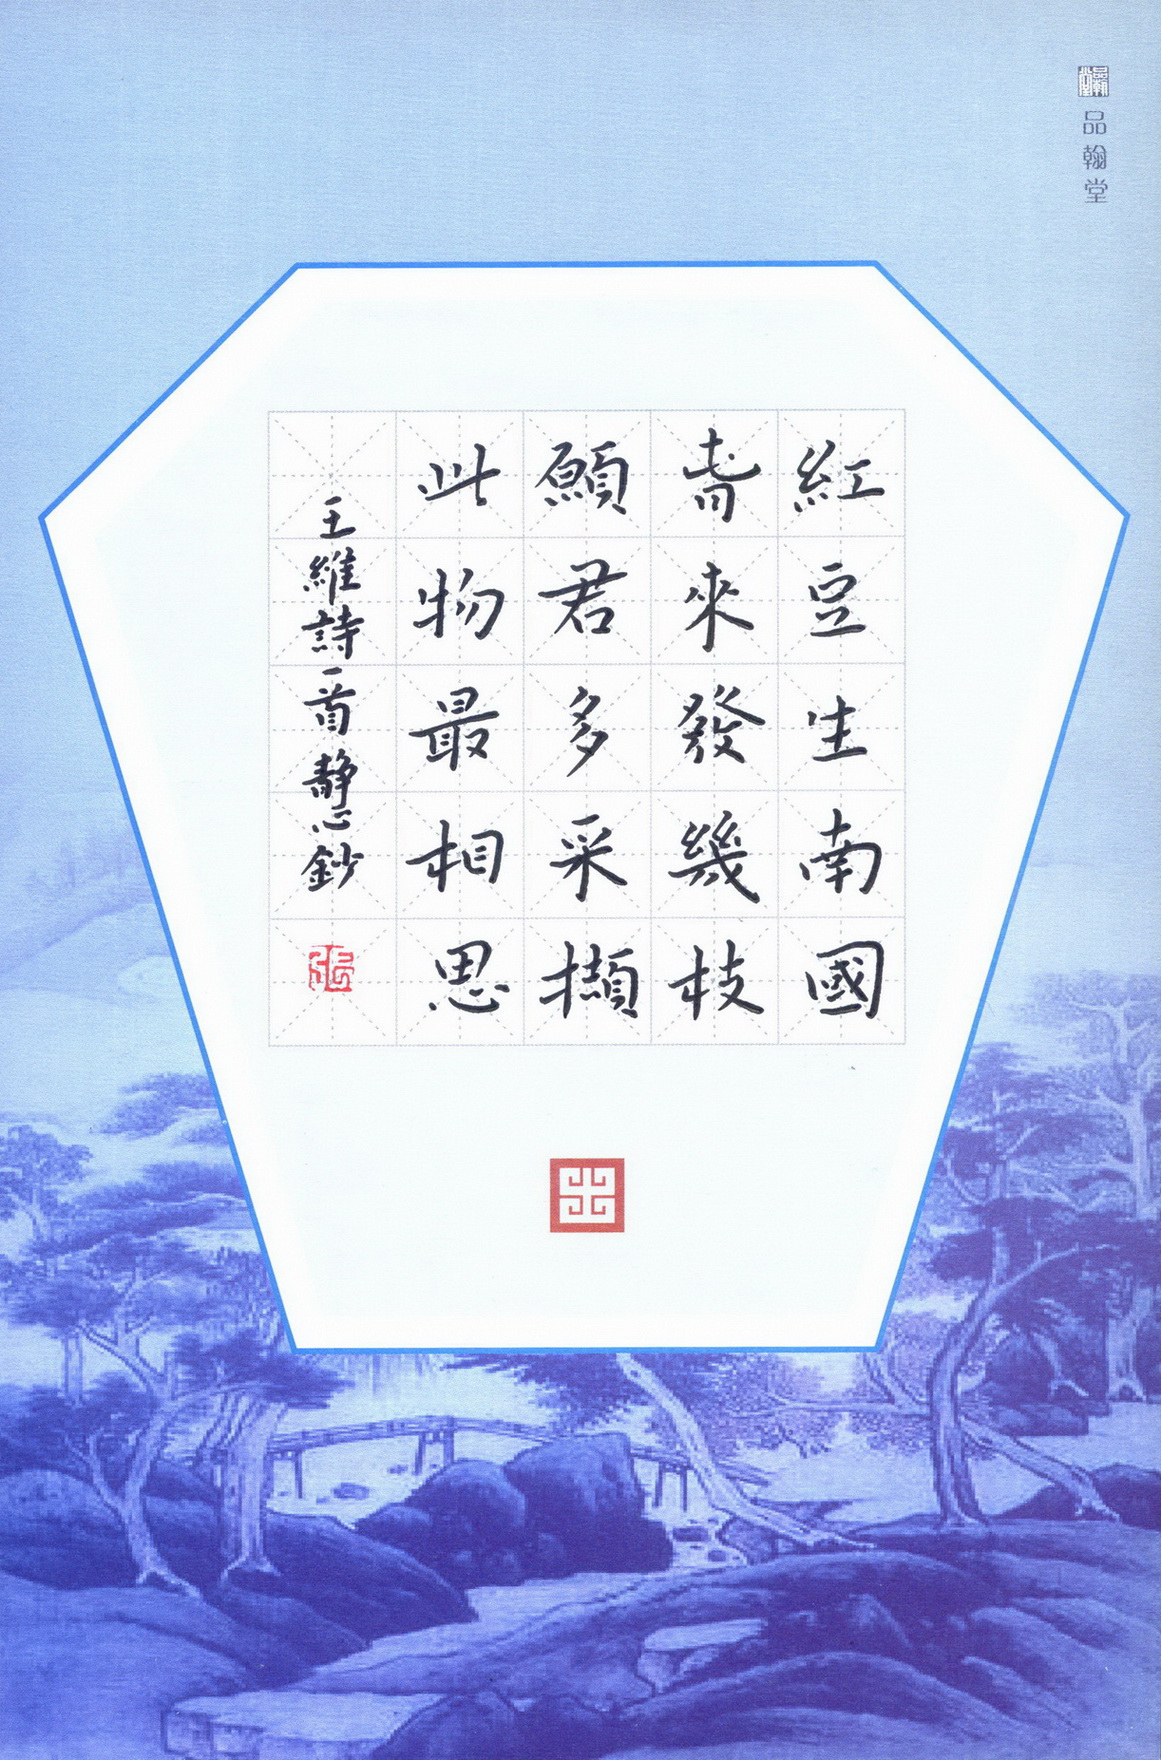 品翰堂
紅豆生南國
旾來發幾枝
願君多采擷
此物最相思
王維詩一首静心鈔